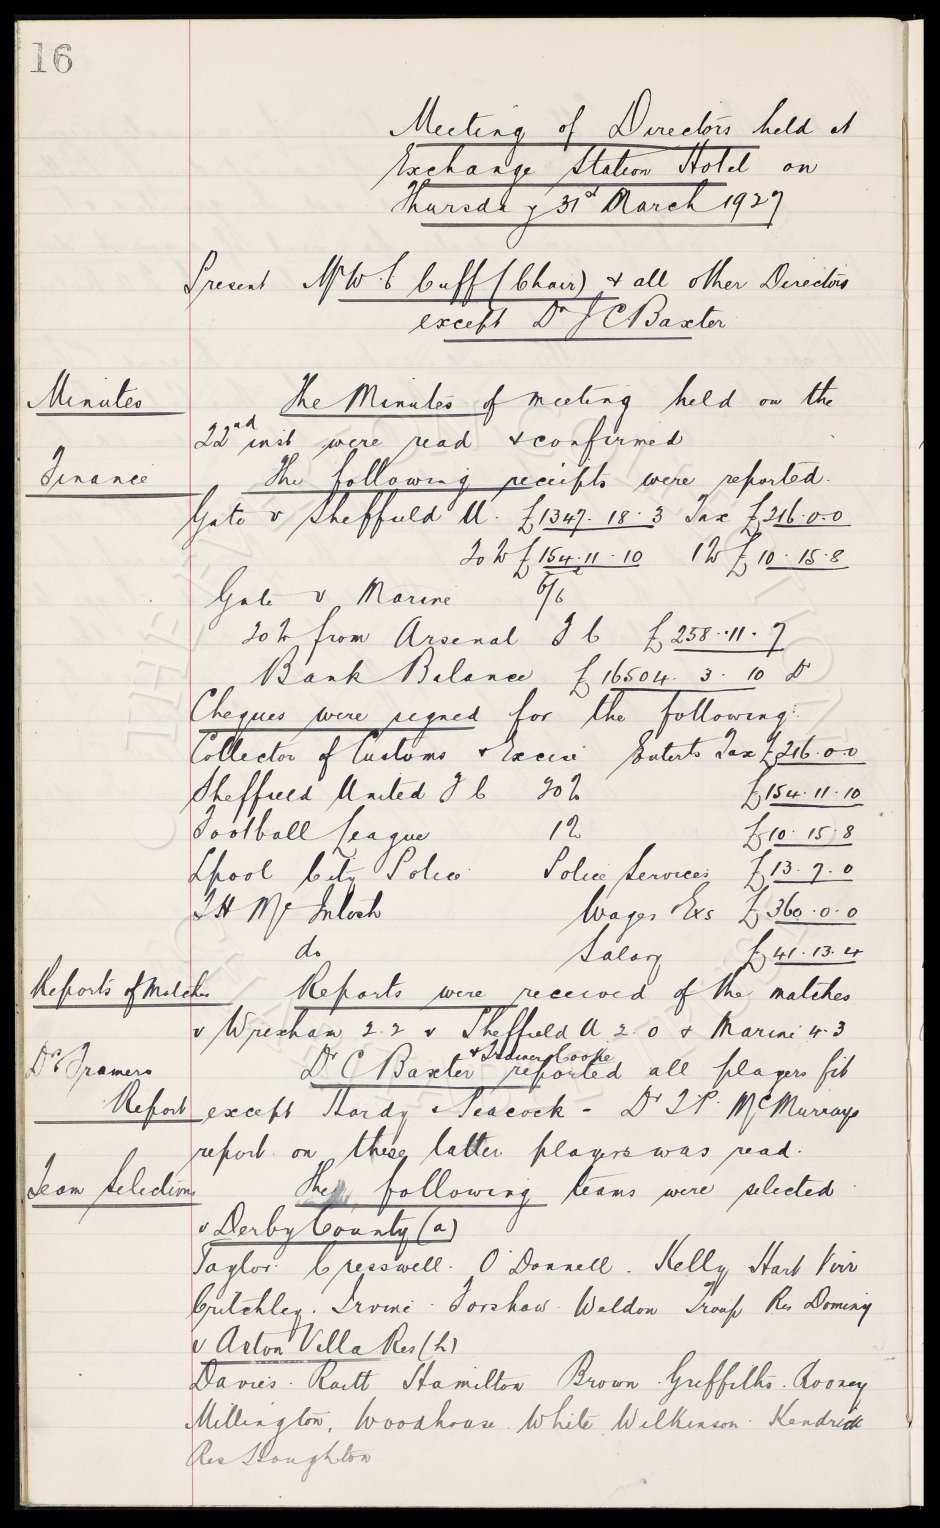 16
Meeting of Directors held at
Exchange Station Hotel on
Thursday 31st March 1927
Present Mr W. C Cuff (Chair) & all other Directors
except Dr J C Baxter
Minutes The Minutes of meeting held on the
22nd inst were read & confirmed
Finance The following receipts were reported.
Gate v Sheffield U. £1347. 18. 3 Tax £216.0.0
20% £154.11.10 1% £10.15.8
Gate v Marine 6/6
20% from Arsenal F C £258.11.7
Bank Balance £16504. 3. 10 Dr
Cheques were signed for the following:
Collector of Customs & Excise Enterts Tax £216.0.0
Sheffield United F C 20% £154.11.10
Football League 1% £10.15.8
Lpool City Police Police Services £13.7.0
T H McIntosh Wages Exs £360.0.0
do Salary £41.13.4
Reports of Matches Reports were received of the matches
v Wrexham 2.2 v Sheffield U 2.0 & Marine 4.3
Drs Trainers Dr C Baxter & Trainer Cooke reported all players fit
Report except Hardy & Peacock - Dr T P. McMurrays
report on these latter players was read.
Team Selections The following teams were selected
v Derby County (a)
Taylor. Cresswell. O'Donnell. Kelly Hart Virr
Critchley. Irvine. Forshaw. Weldon Troup Res Dominy
v Aston Villa Res (h)
Davies. Raitt Hamilton Brown. Griffiths. Rooney
Millington, Woodhouse White Wilkinson. Kendrick
Res Houghton